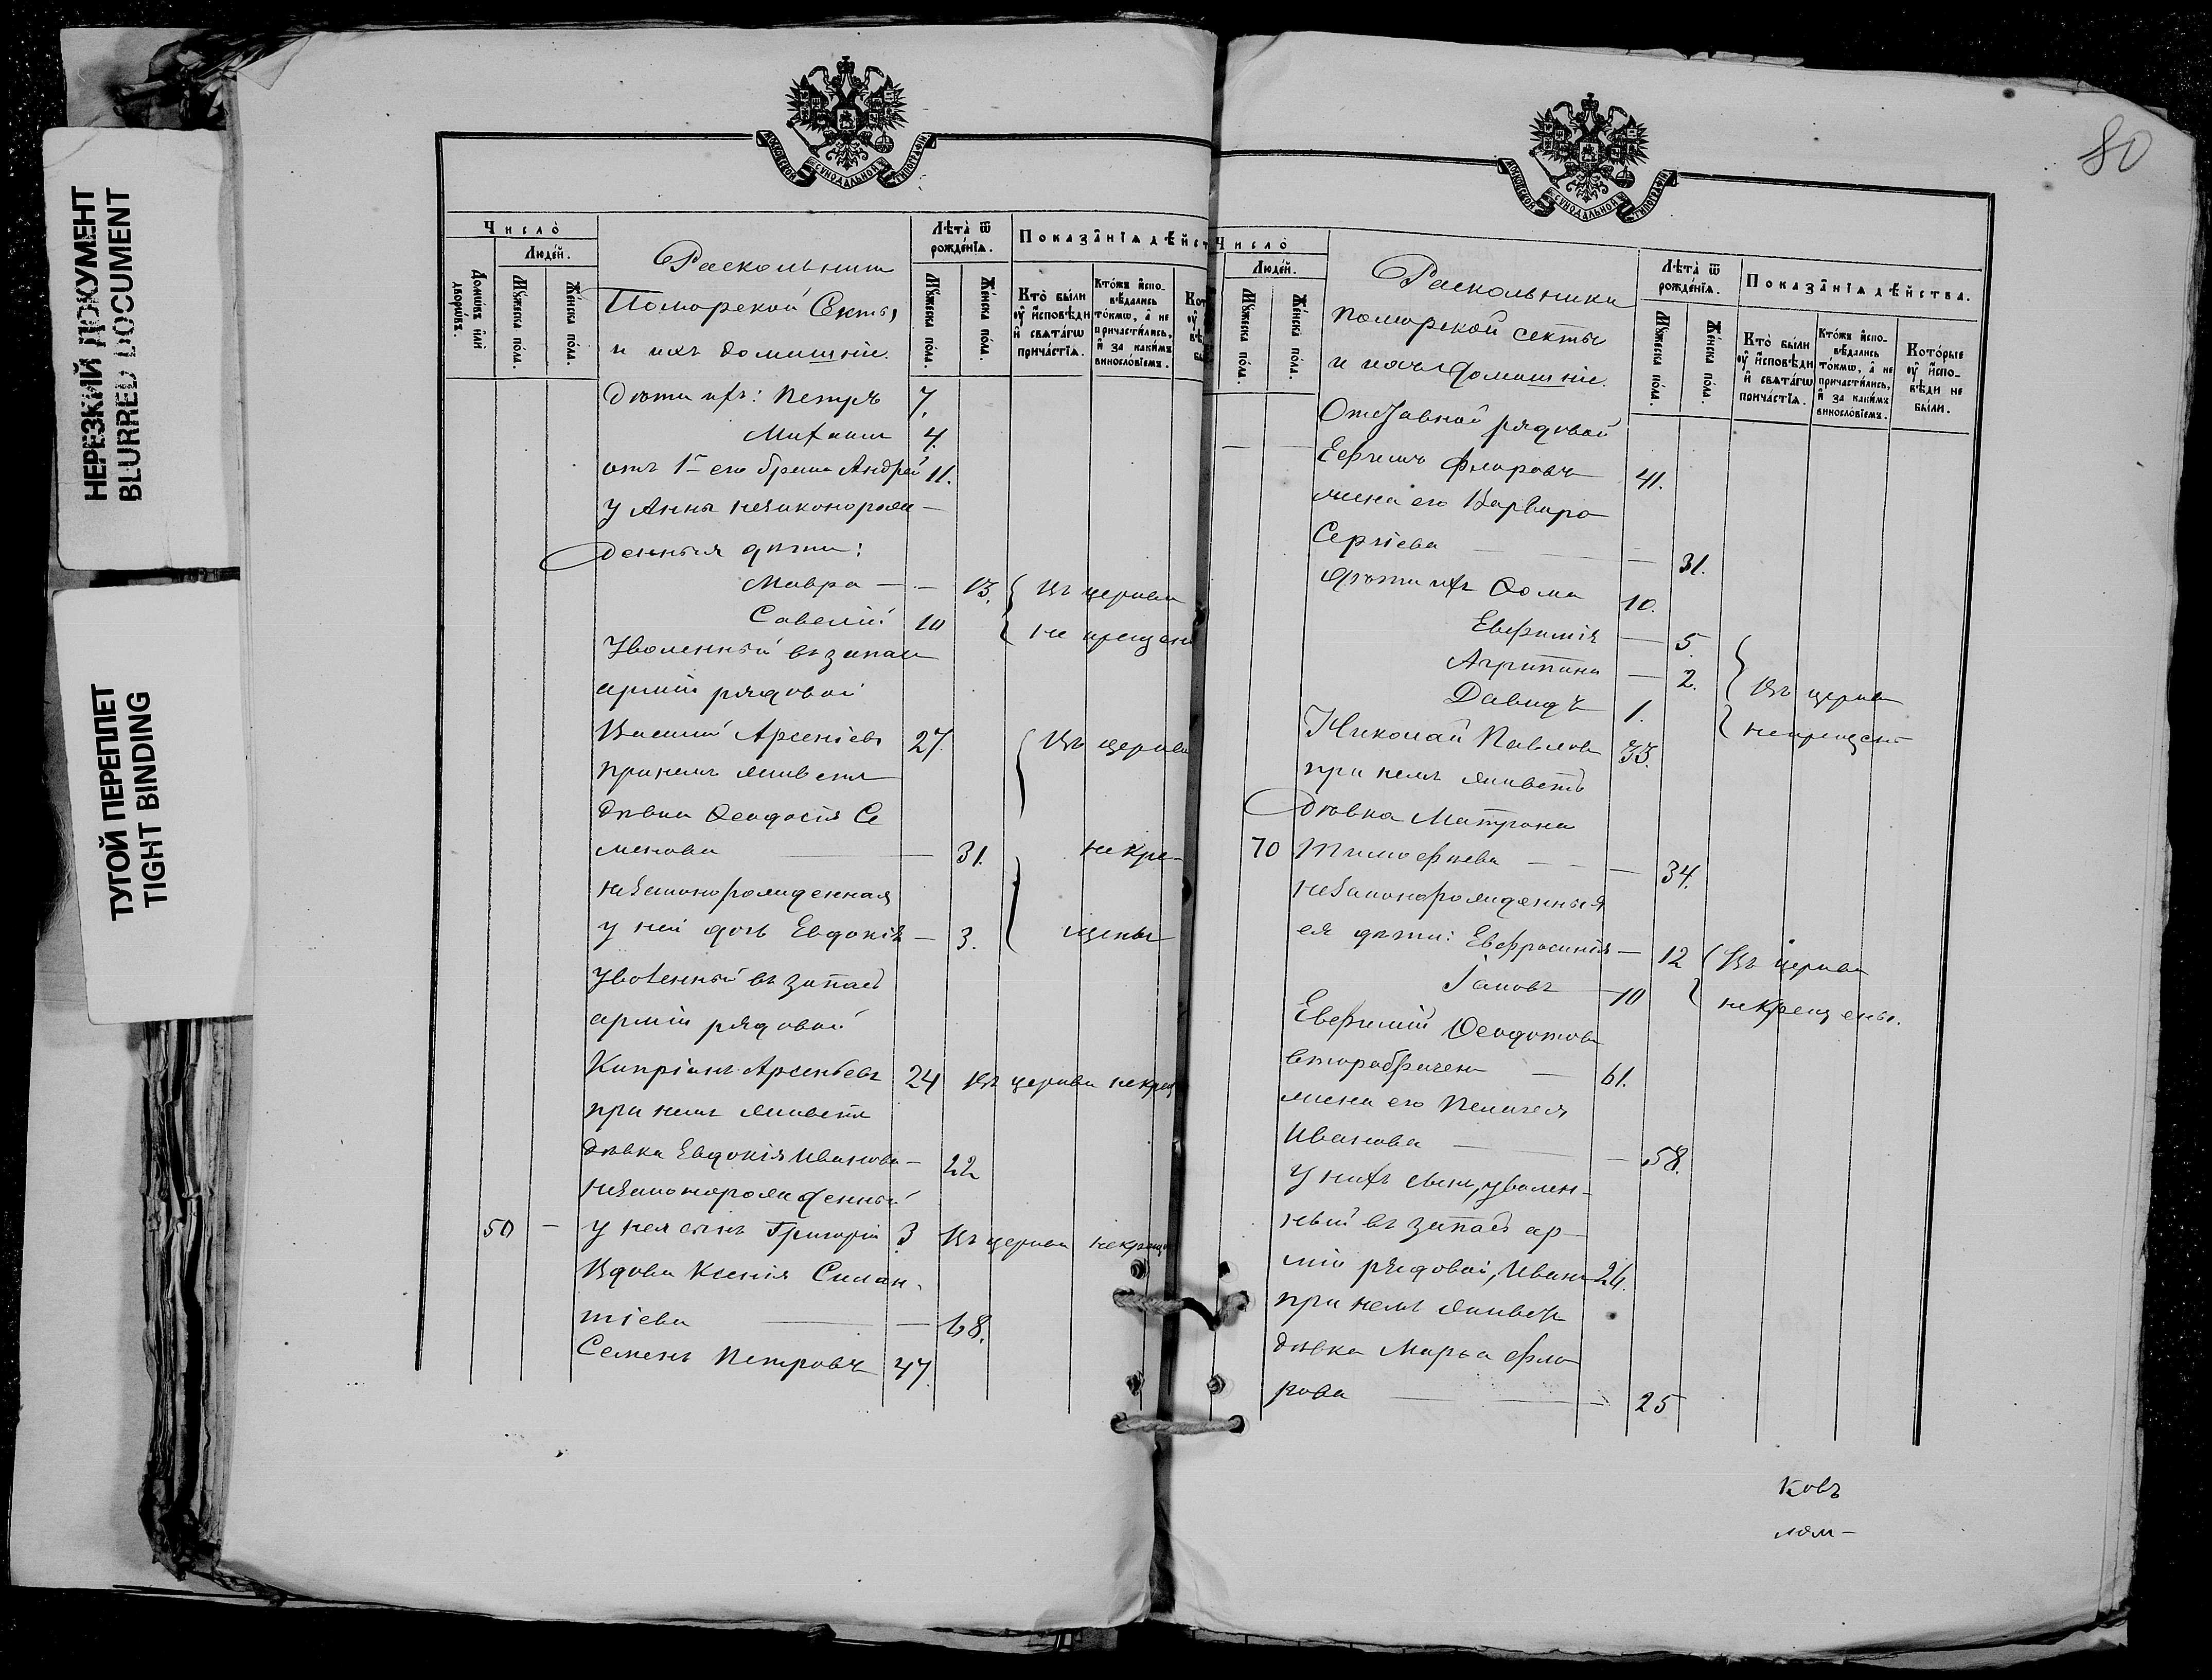 НЕРЕЗКИЙ ДОКУМЕНТ
BLURRED DOCUMENT
ТУГОЙ ПЕРЕПЛЕТ
TIGHT BINDING
МОСКОВСКОЙ СУНОДАЛЬНОЙ ТИПОГРАФІИ
Число̀
Люде́й.
Домѡ́въ и҆лѝ дворѡ́въ.
Мꙋ́жеска по́ла.
Же́нска по́ла.
Раскольники
Поморской Секты
и ихъ домашніе.
Лѣ́та ѿ рожде́нїѧ.
Мꙋ́жеска по́ла.
Же́нска по́ла.
Показа̂нїѧ дѣ́йст
Кто̀ бы́ли ᲂу҆ и҆сповѣ́ди и҆ свѧта́гѡ прича́стїѧ.
Кто́жъ и҆спо-
вѣ́дались
то́кмѡ, а҆ не
причасти́лись,
и҆ за каки́мъ
винослѡ́вїемъ.
дѣти ихъ: Петръ 7.
Михаилъ 4.
отъ 1го его брака Андрей 11.
у Анны незаконорож-
денныя дѣти:
Мавра — — 13. Въ церкви
Савелій 10 не крещены
Уволенный въ запасъ
арміи рядовой
Василій Арсеніевъ 27. Въ церкви
при немъ живетъ
дѣвка Ѳеодосія Се
менова — 31. некре-
незаконорожденная
у ней дочь Евдокія — 3. щены
Уволенный въ запасъ
арміи рядовой
Кипріанъ Арсеньевъ 24 Въ церкви некрещ
при немъ живетъ
дѣвка Евдокія Иванова — 22
незаконорожденный
50 — у нея сынъ Григорій 3 Въ церкви некрещ
Вдова Ксенія Силан-
тіева — — 68.
Семенъ Петровъ 47.
80
МОСКОВСКОЙ СУНОДАЛЬНОЙ ТИПОГРАФІИ
Число̀
Люде́й.
Мꙋ́жеска по́ла.
Же́нска по́ла.
Раскольники
поморской секты
и ихъ домашніе.
Лѣ́та ѿ рожде́нїѧ.
Мꙋ́жеска по́ла.
Же́нска по́ла.
Показа̂нїѧ дѣ́йства.
Кто̀ бы́ли ᲂу҆ и҆сповѣ́ди и҆ свѧта́гѡ прича́стїѧ.
Кто́жъ и҆спо-
вѣ́дались
то́кмѡ, а҆ не
причасти́лись,
и҆ за каки́мъ
винослѡ́вїемъ.
Кото́рые ᲂу҆ и҆спо-
вѣ́ди не
бы́ли.
Отставной рядовой
Ефимъ Флоровъ 41.
жена его Варвара
Сергіева — — 31.
дѣти ихъ Ѳома 10.
Евфимія — 5.
Агрипина — 2. Въ церкви
Давидъ 1. некрещены
Николай Павловъ 33.
при немъ живетъ
дѣвка Матрона
70 Тимофеева — — 34.
незаконорожденныя
ея дѣти: Евфросинія — 12 Въ церкви
Іаковъ 10 некрещены.
Евфимій Ѳеодотовъ
второбраченъ — 61.
жена его Пелагея
Иванова — — 58.
У нихъ сынъ, уволен-
ный въ запасъ ар-
міи рядовой, Иванъ 24.
при немъ живетъ
дѣвка Марья Фло
рова — — 25
ковъ
лом-